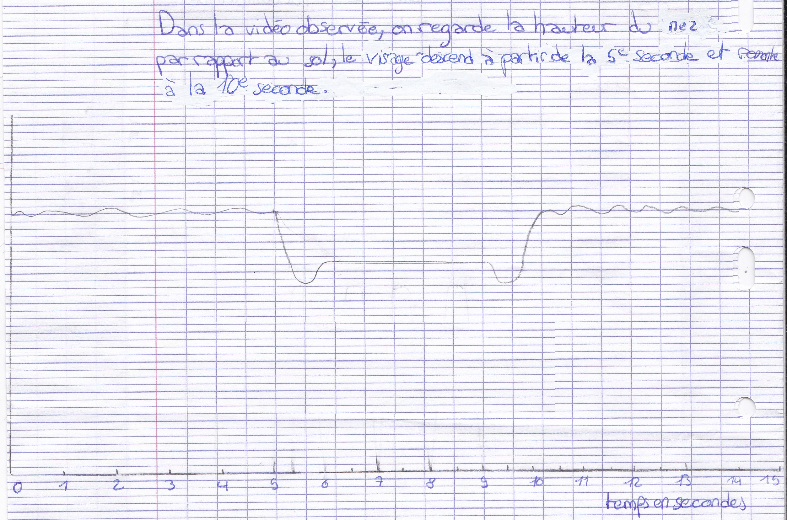 Dans la vidéo observée, on regarde la hauteur du nez
par rapport au sol, le visage descend à partir de la 5e seconde et remonte
à la 10e seconde.
0 1 2 3 4 5 6 7 8 9 10 11 12 13 14 15
temps en secondes